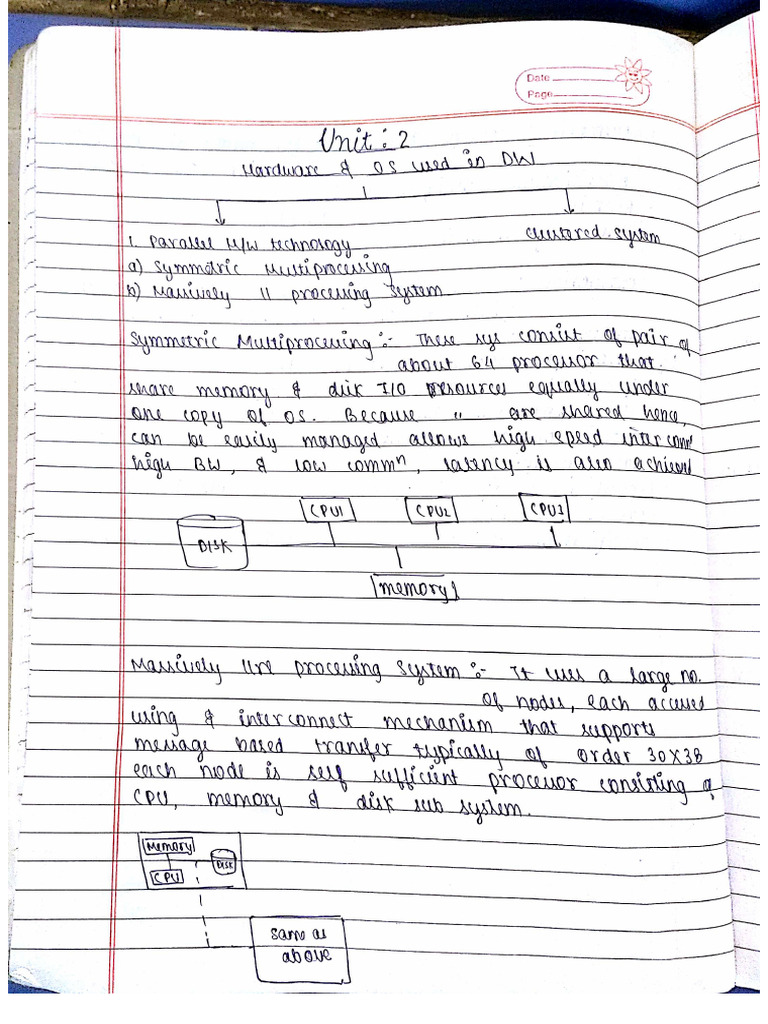 Date
Page
Unit : 2
Hardware & OS used in DW
1. Parallel H/w technology
clustered system
a) Symmetric Multiprocessing
b) Massively 11 processing System
Symmetric Multiprocessing :- These sys consist of pair of
about 64 processor that
share memory & disk I/O resources equally under
one copy of OS. Because " are shared hence,
can be easily managed allows high speed interconn
high BW, & low commⁿ, latency is also achieved
CPU1 CPU2 CPU3
DISK
memory
Massively llre processing system :- It uses a large no.
of nodes, each accessed
using & interconnect mechanism that supports
message based transfer typically of order 30X38
each node is self sufficient processor consisting of
CPU, memory & disk sub system.
Memory
DISK
CPU
same as
above